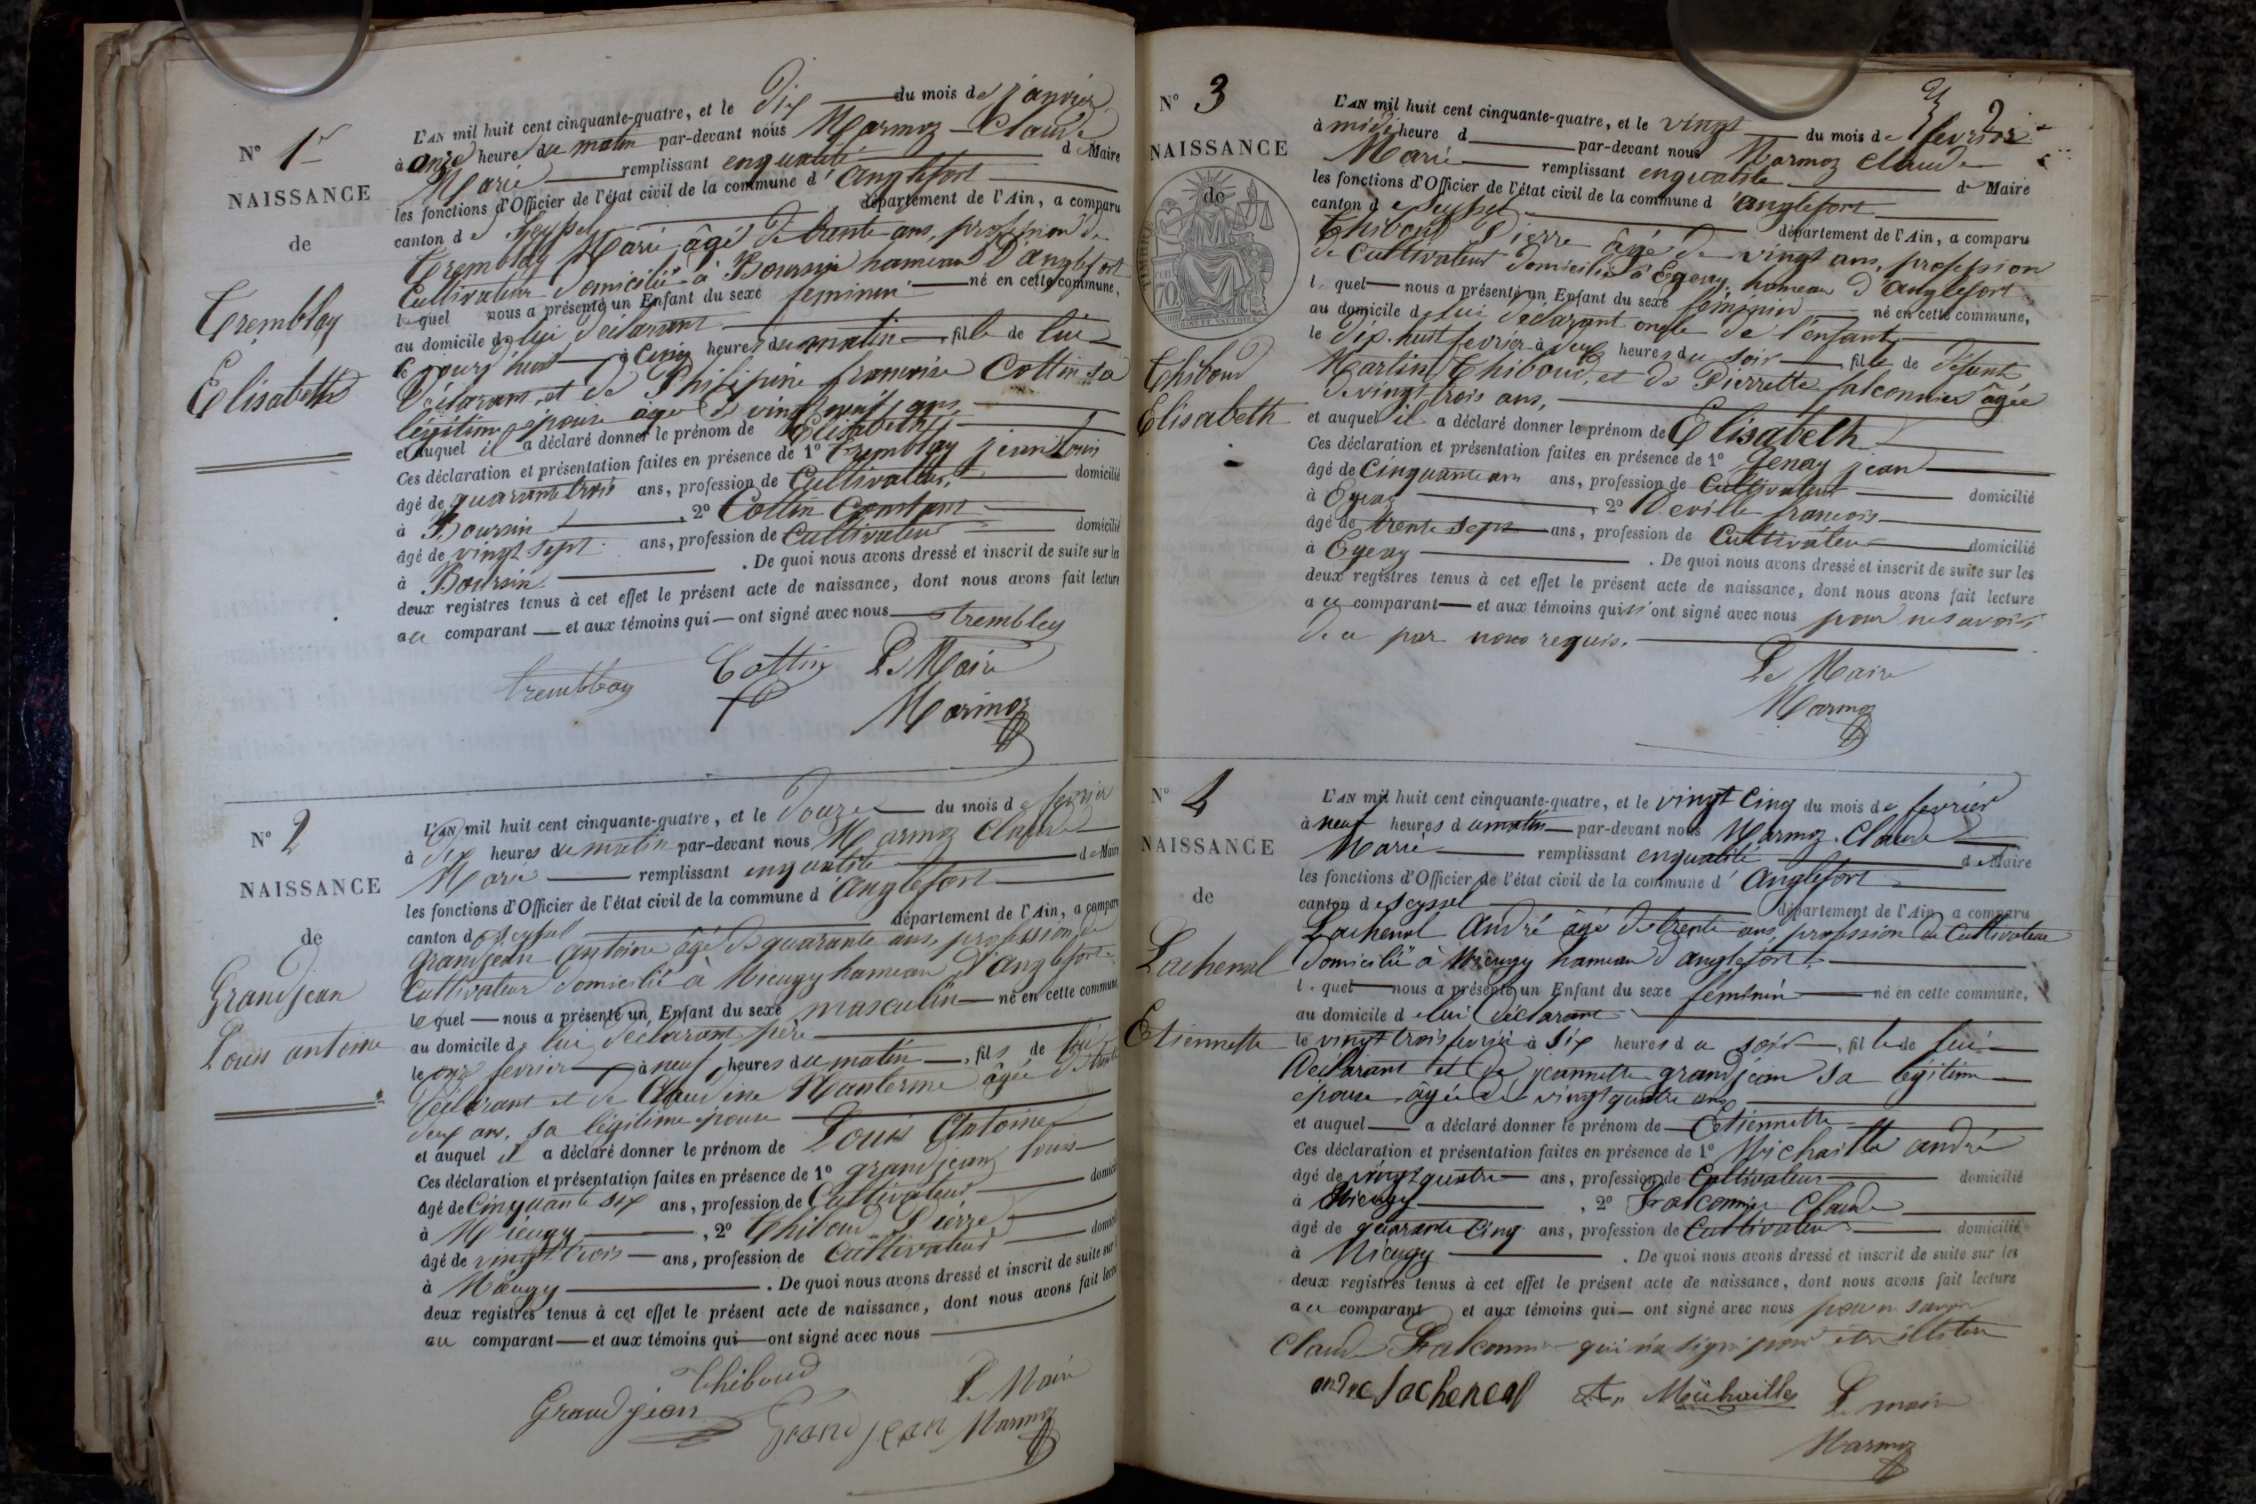 N° 1er
NAISSANCE
de
Tremblay
Elisabeth
L'AN mil huit cent cinquante-quatre, et le dix du mois de janvier
à onze heure du matin par-devant nous Marmoz Claude
Marie remplissant en qualité de Maire
les fonctions d'Officier de l'état civil de la commune d' anglefort
canton de Seyssel département de l'Ain, a comparu
Tremblay Marie âgé de trente ans, profession de
Cultivateur domicilié à Boursin hameau d'anglefort
lequel nous a présenté un Enfant du sexe feminin né en cette commune,
au domicile de lui déclarant
le jourd'hui à cinq heures du matin, fille de lui
déclarant et de Philipine francoise Cottin sa
légitime épouse âgée de vingt neuf ans,
et auquel il a déclaré donner le prénom de Elisabeth
Ces déclaration et présentation faites en présence de 1° Tremblay jean Louis
âgé de quarante trois ans, profession de Cultivateur domicilié
à Boursin, 2° Cottin Constant
âgé de vingt sept ans, profession de Cultivateur domicilié
à Boursin. De quoi nous avons dressé et inscrit de suite sur les
deux registres tenus à cet effet le présent acte de naissance, dont nous avons fait lecture
au comparant et aux témoins qui ont signé avec nous tremblay
tremblay Cottin Le Maire
Marmoz
N° 2
NAISSANCE
de
Grandjean
Louis antoine
L'AN mil huit cent cinquante-quatre, et le douze du mois de fevrier
à dix heures du matin par-devant nous Marmoz Claude
Marie remplissant en qualité de Maire
les fonctions d'Officier de l'état civil de la commune d' anglefort
canton de Seyssel département de l'Ain, a comparu
Grandjean antoine âgé de quarante ans, profession de
Cultivateur domicilié à Mieugy hameau d'anglefort
lequel nous a présenté un Enfant du sexe masculin né en cette commune,
au domicile de lui déclarant père
le onze fevrier à neuf heures du matin, fils de lui
déclarant et de Claudine âgée de trente
deux ans, sa légitime épouse
et auquel il a déclaré donner le prénom de Louis Antoine
Ces déclaration et présentation faites en présence de 1° grandjean louis
âgé de Cinquante six ans, profession de Cultivateur domicilié
à Mieugy, 2° Thiboud Pierre
âgé de vingt trois ans, profession de Cultivateur domicilié
à Mieugy. De quoi nous avons dressé et inscrit de suite sur les
deux registres tenus à cet effet le présent acte de naissance, dont nous avons fait lecture
au comparant et aux témoins qui ont signé avec nous
Thiboud Le Maire
Grandjean Grandjean Marmoz
2
N° 3
NAISSANCE
de
Thiboud
Elisabeth
L'AN mil huit cent cinquante-quatre, et le vingt du mois de fevrier
à midi heure d par-devant nous Marmoz Claude
Marie remplissant en qualité de Maire
les fonctions d'Officier de l'état civil de la commune d' anglefort
canton de Seyssel département de l'Ain, a comparu
Thiboud Pierre âgé de vingt ans, profession
de Cultivateur domicilié à Eyenay hameau d'anglefort
lequel nous a présenté un Enfant du sexe féminin né en cette commune,
au domicile de lui déclarant oncle de l'enfant
le dix huit fevrier à deux heures du soir fille de défunt
Martin Thiboud, et de Pierrette falconnier âgée
de vingt trois ans,
et auquel il a déclaré donner le prénom de Elisabeth
Ces déclaration et présentation faites en présence de 1° Genay jean
âgé de Cinquante ans ans, profession de Cultivateur domicilié
à Eyenay, 2° Deville francois
âgé de trente sept ans, profession de Cultivateur domicilié
à Eyenay. De quoi nous avons dressé et inscrit de suite sur les
deux registres tenus à cet effet le présent acte de naissance, dont nous avons fait lecture
au comparant et aux témoins qui n'ont signé avec nous pour ne savoir
de ce par nous requis.
Le Maire
Marmoz
N° 4
NAISSANCE
de
Lachenal
Etiennette
L'AN mil huit cent cinquante-quatre, et le vingt Cinq du mois de fevrier
à neuf heures du matin par-devant nous Marmoz Claude
Marie remplissant en qualité de Maire
les fonctions d'Officier de l'état civil de la commune d' anglefort
canton de Seyssel département de l'Ain, a comparu
Lachenal André âgé de trente ans profession de Cultivateur
domicilié à Mieugy hameau d'anglefort
lequel nous a présenté un Enfant du sexe feminin né en cette commune,
au domicile de lui déclarant
le vingt trois fevrier à six heures du soir, fille de lui
déclarant et de jeannette grandjean sa légitime
épouse âgée de vingt quatre ans
et auquel a déclaré donner le prénom de Etiennette
Ces déclaration et présentation faites en présence de 1° Michaille andré
âgé de vingt quatre ans, profession de Cultivateur domicilié
à Mieugy, 2° Falconnier Claude
âgé de quarante Cinq ans, profession de Cultivateur domicilié
à Mieugy. De quoi nous avons dressé et inscrit de suite sur les
deux registres tenus à cet effet le présent acte de naissance, dont nous avons fait lecture
au comparant et aux témoins qui ont signé avec nous
Claude Falconnier qui n'a signé pour être illiteré
andre lachenal Le maire
Marmoz